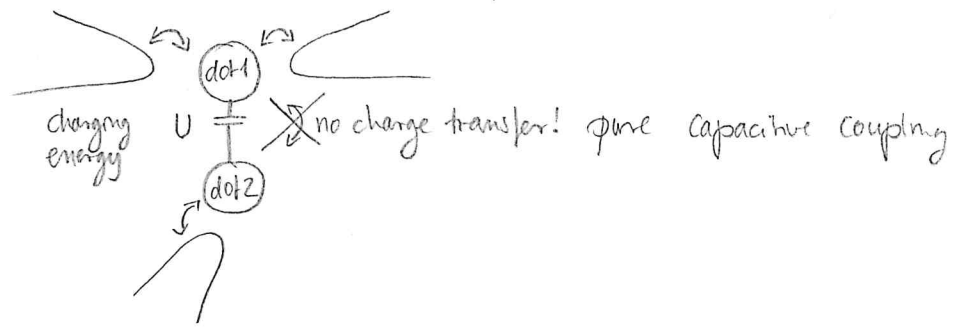 dot1
charging U no charge transfer! pure capacitive coupling
energy
dot2